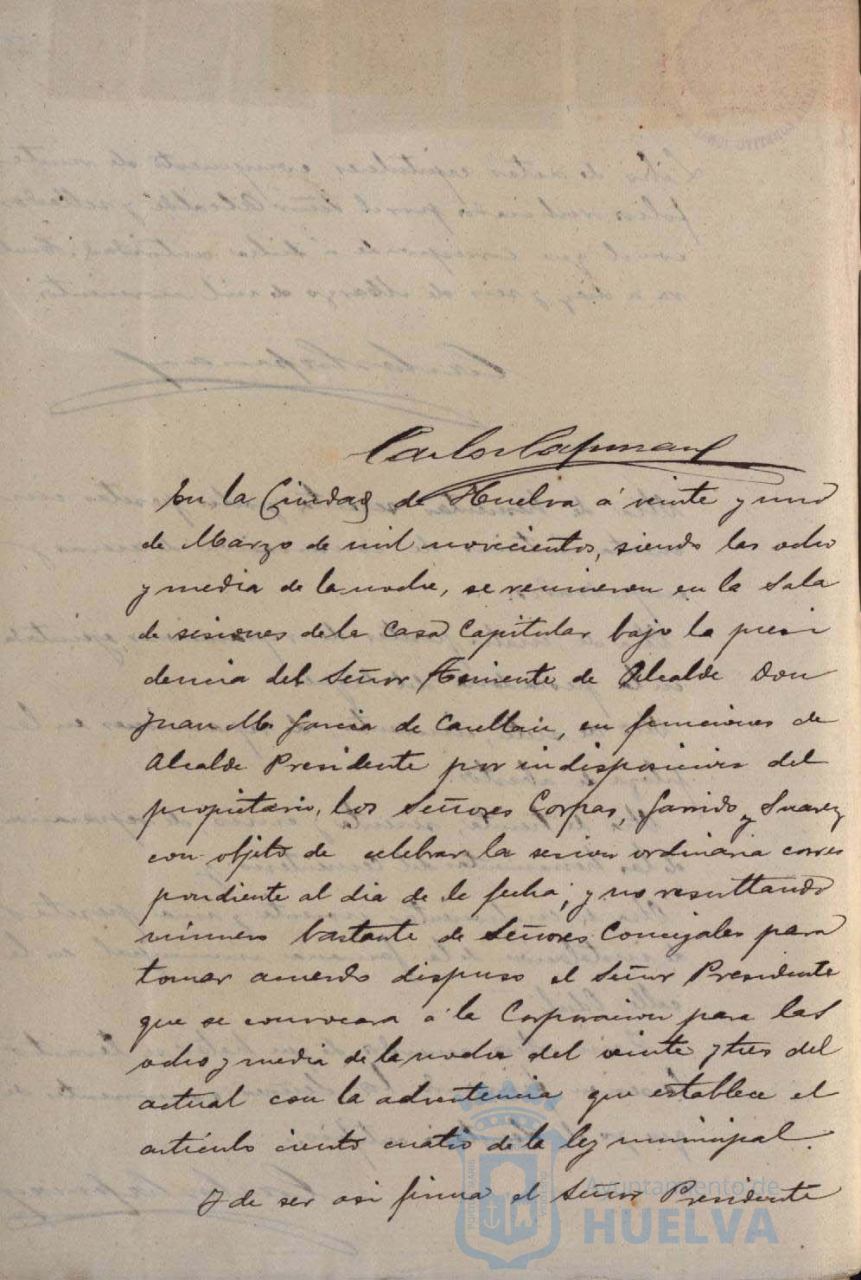 Carlos
En la Ciudad de Huelva á veinte y uno
de Marzo de mil novecientos, siendo las ocho
y media de la noche, se reunieron en la Sala
de sesiones de la Casa Capitular bajo la presi
dencia del Señor Teniente de Alcalde Don
Juan M. Garcia de, en funciones de
Alcalde Presidente por indisposicion del
propietario, los Señores Corpas, Garrido y Suarez
con objeto de celebrar la sesion ordinaria corres
pondiente al dia de la fecha; y no resultando
número bastante de Señores Concejales para
tomar acuerdo dispuso el Señor Presidente
que se convocara á la Corporacion para las
ocho y media de la noche del veinte y tres del
actual con la advertencia que establece el
artículo ciento cuatro de la ley municipal.
Y de ser asi firma el Señor Presidente
Ayuntamiento de
HUELVA